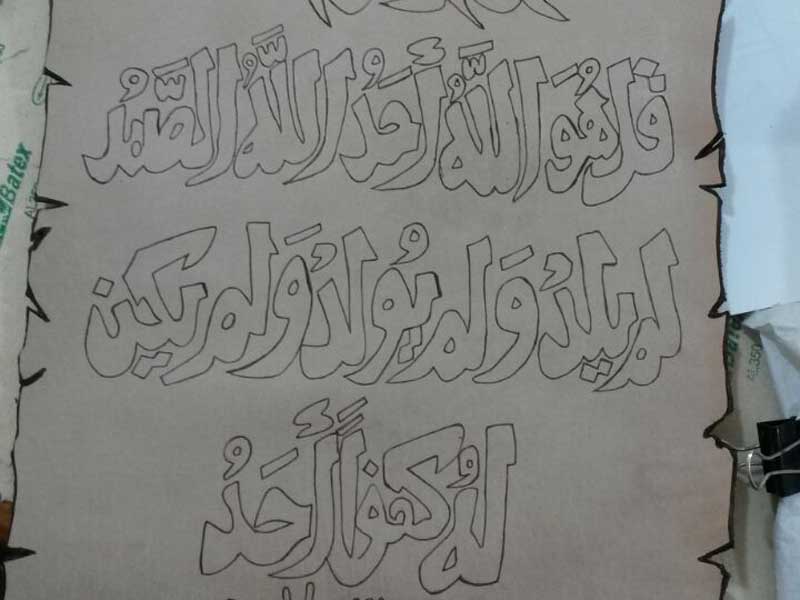 قل هُوَ اللَّهُ أَحَدُ اللَّهُ الصَّمَدُ
لم يلدُ وَلم يُولدُ وَلم يكن
لهُ كفواً أَحَدُ
Batex